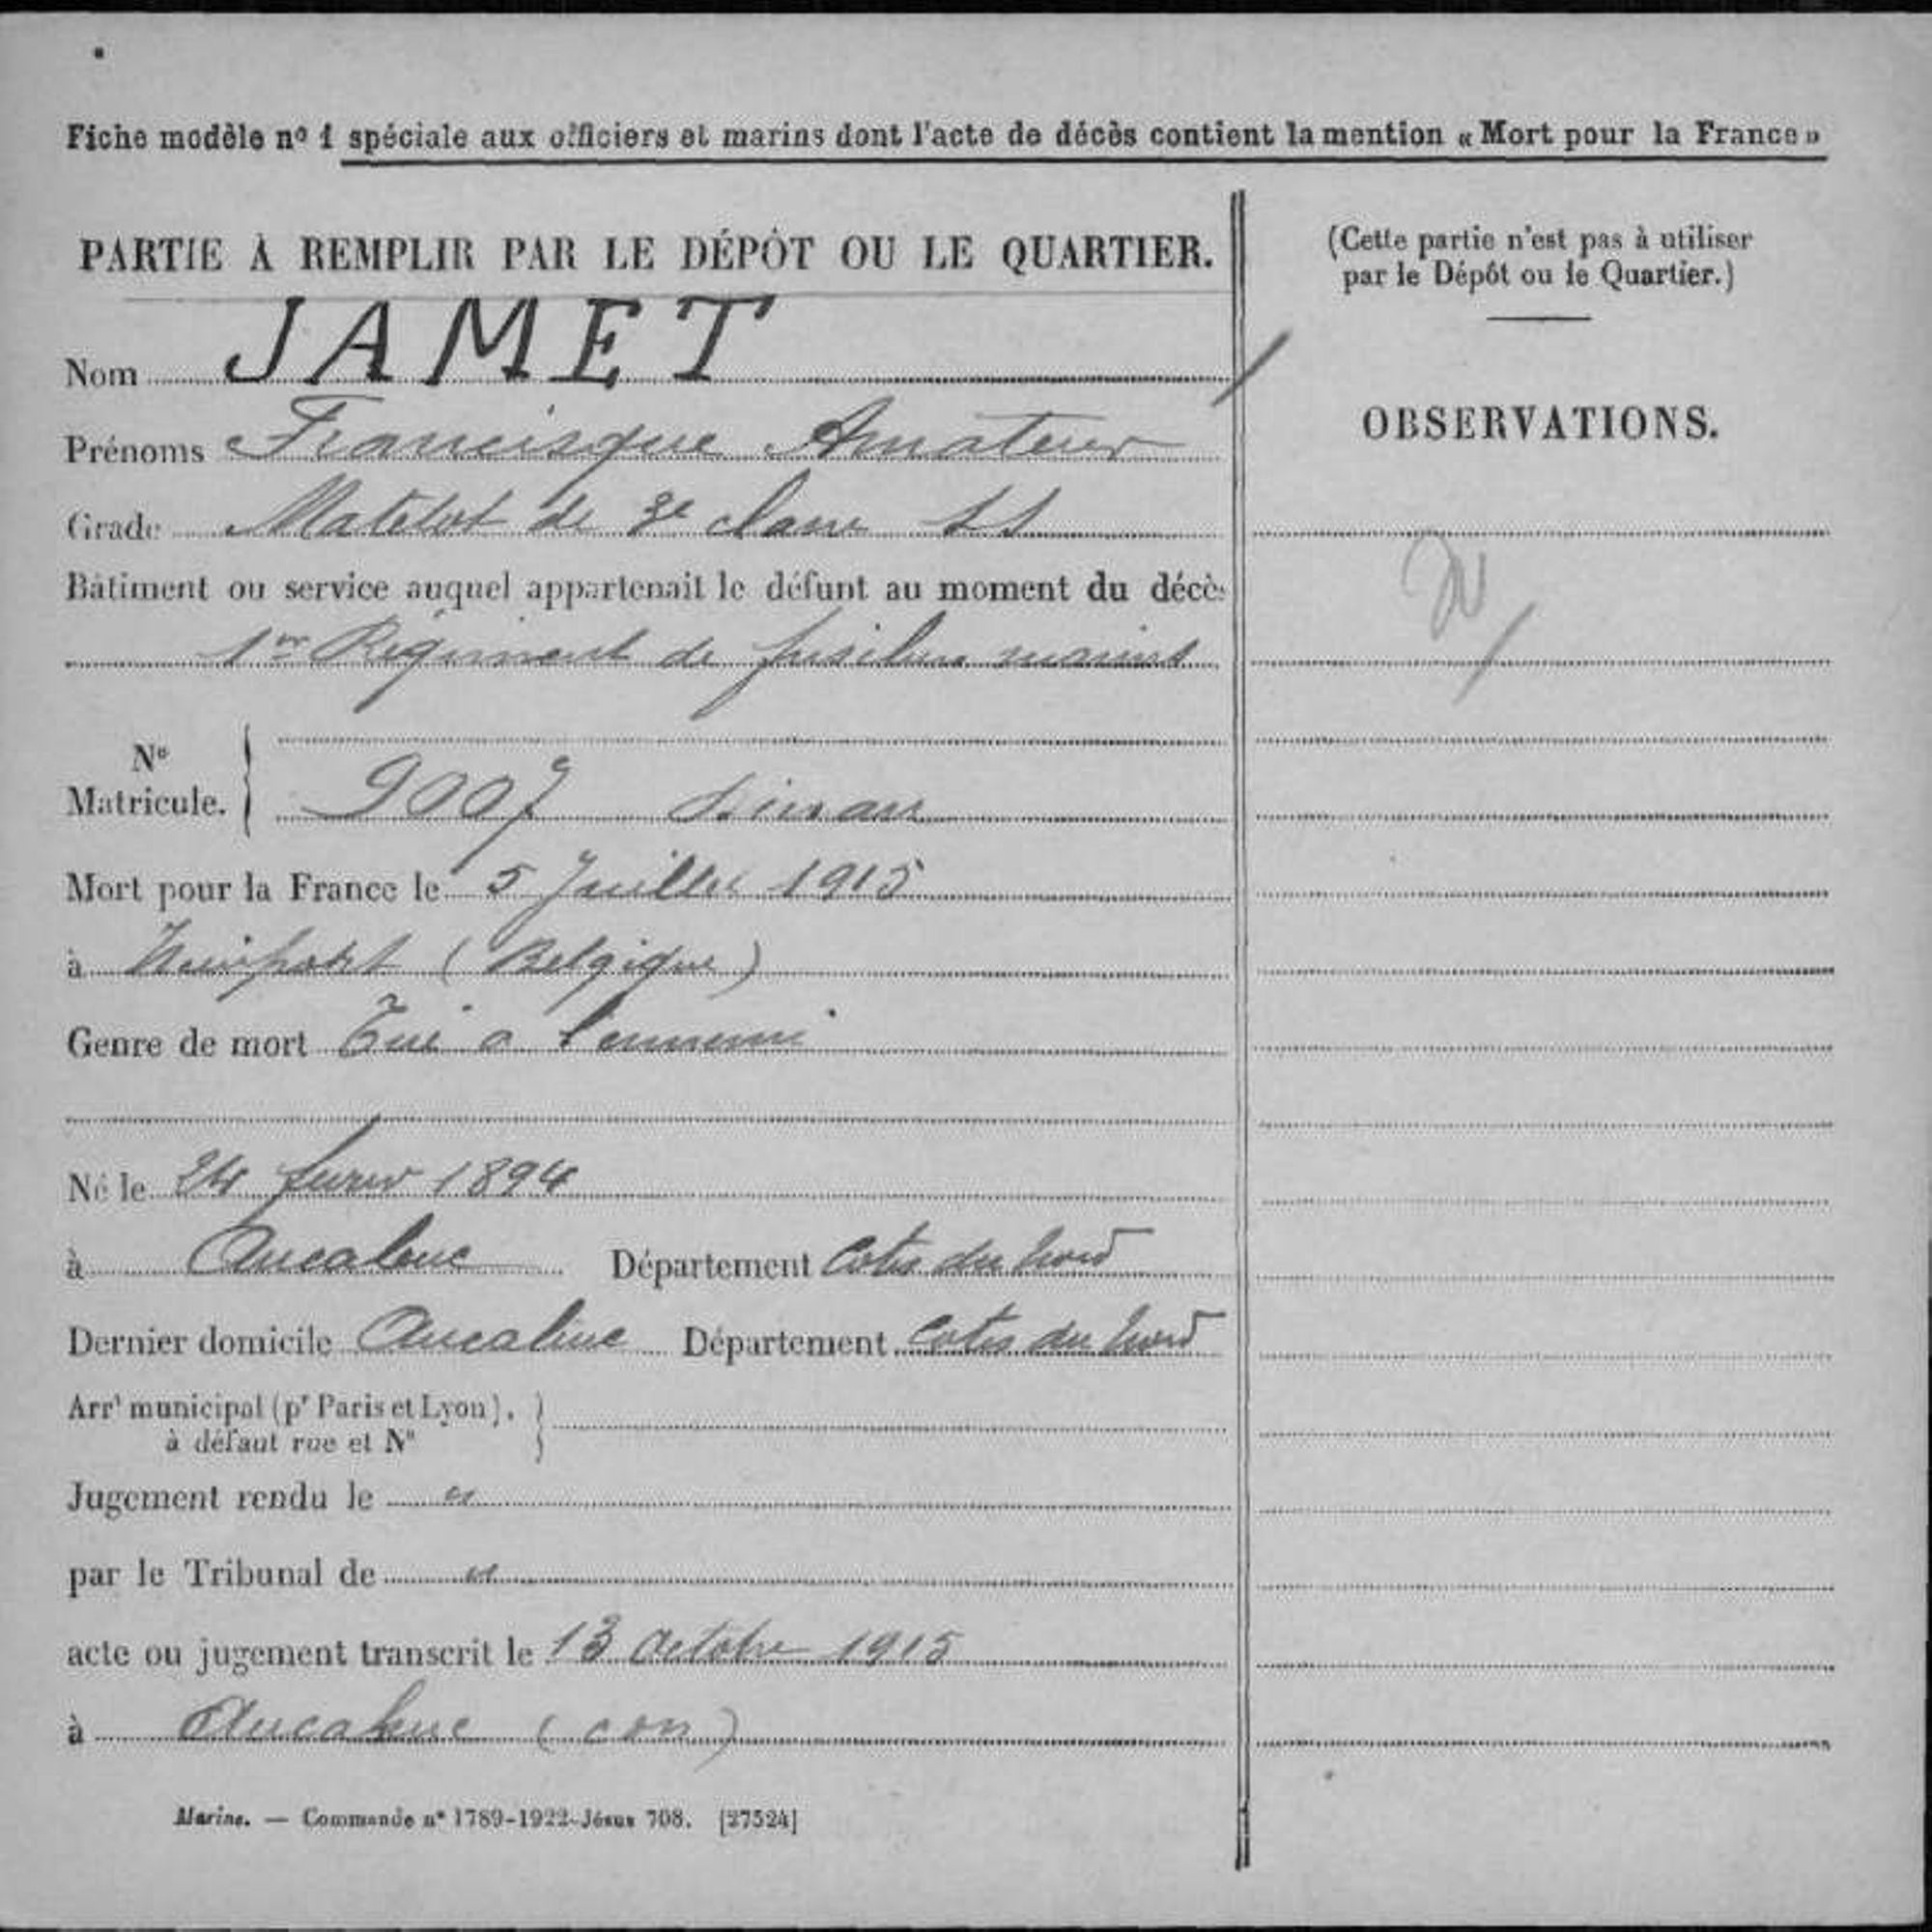 Fiche modèle nº 1 spéciale aux officiers et marins dont l'acte de décès contient la mention « Mort pour la France »
PARTIE À REMPLIR PAR LE DÉPÔT OU LE QUARTIER.
Nom JAMET
Prénoms Francisque Amateur
Grade Matelot de 3e classe
Bâtiment ou service auquel appartenait le défunt au moment du décès
1er Régiment de fusiliers marins
Nº
Matricule. 9007 Dinan
Mort pour la France le 5 Juillet 1915
à Nieuport (Belgique)
Genre de mort Tué à l'ennemi
Né le 24 février 1894
à Aucaleuc Département Cotes du Nord
Dernier domicile Aucaleuc Département Cotes du Nord
Arrt municipal (pr Paris et Lyon),
à défaut rue et Nº
Jugement rendu le "
par le Tribunal de "
acte ou jugement transcrit le 13 Octobre 1915
à Aucaleuc (CDN)
Marine. — Commande nº 1789-1922-Jésus 708. [27524]
(Cette partie n'est pas à utiliser
par le Dépôt ou le Quartier.)
OBSERVATIONS.